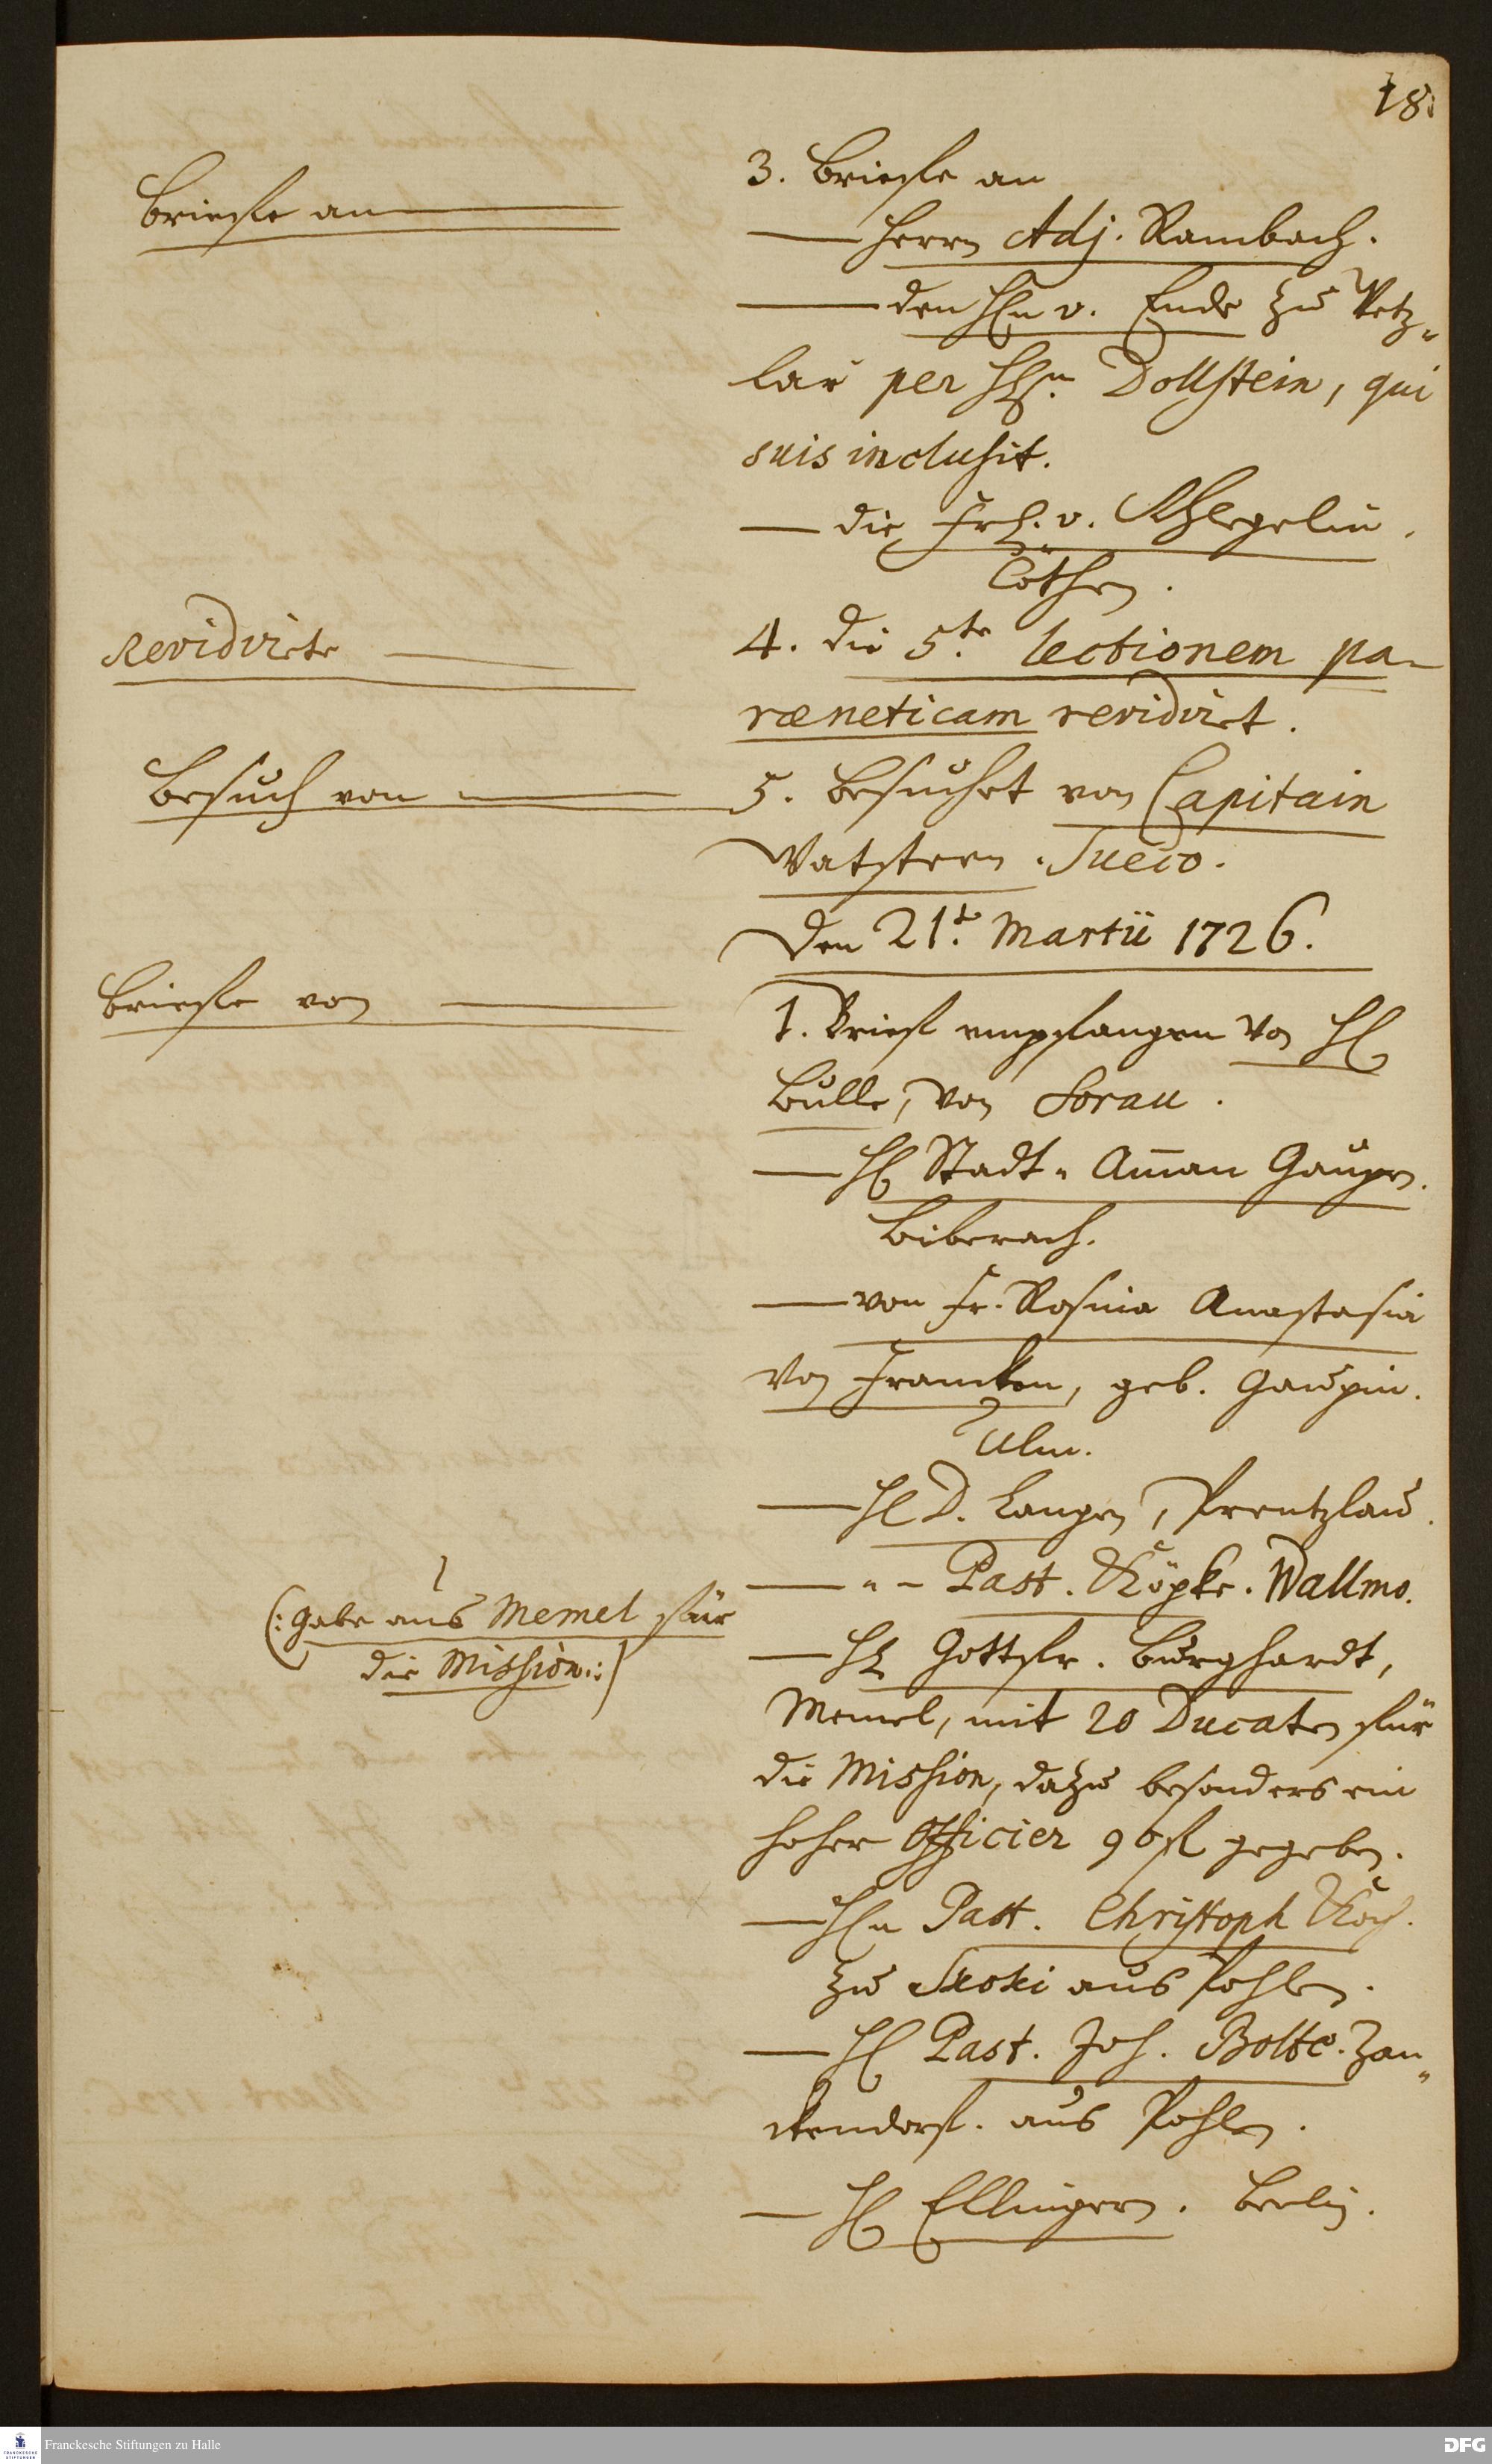 18.
Brieffe an
3. Brieffe an
Herrn Adj. Rambach.
den Hln v. Ende zu Wetz-
lar per Hln. Dollstein, qui
suis inclusit.
die Frl. v. Schlegelin.
Cöthen.
Revidirte
4. die 5te. lectionem pa-
ræneticam revidirt.
Besuch von
5. besuchet von Capitain
Watstern. Sueco.
Den 21t. Martii 1726.
Brieffe von
1. Brief empfangen von Hl
Bulle, von Sorau.
Hl Stadt-Am̄an Gaupen.
Biberach.
von Fr. Rosina Anastasia
von Francken, geb. Gaupin.
Ulm.
Hl D. Langen, Prentzlau.
" - Past. Köpke. Wallmo.
(: Gabe aus Memel für
die Mission :)
Hl Gottfr. Burghardt,
Memel, mit 20 Ducaten für
die Mission, dazu besonders ein
hoher Officier 90 fl gegeben.
Hln Past. Christoph Koch.
zu Skoki aus Pohlen.
Hl Past. Joh. Bolte. Zan-
ckendorf. aus Pohlen.
Hl Ellingern. Berlin.
Franckesche Stiftungen zu Halle
DFG